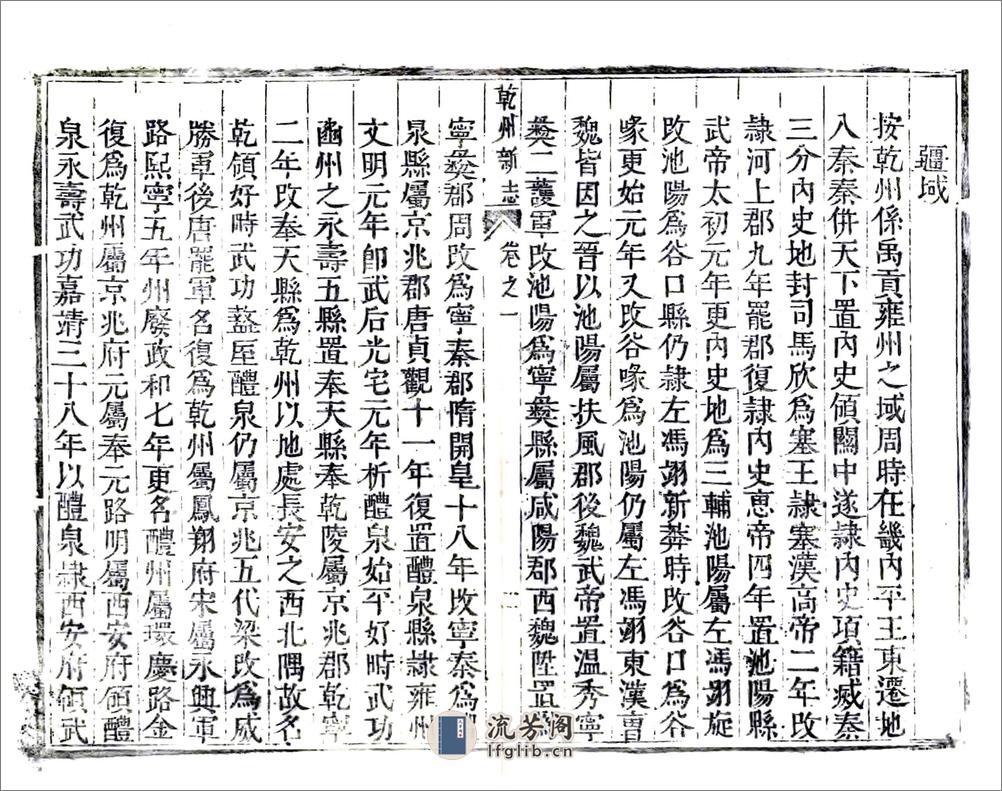 疆域
按乾州係禹貢雍州之域周時在畿內平王東遷地
入秦秦併天下置內史領關中遂隸內史項籍滅秦
三分內史地封司馬欣爲塞王隸塞漢高帝二年改
隸河上郡九年罷郡復隸內史惠帝四年置池陽縣
武帝太初元年更內史地爲三輔池陽屬左馮翊旋
改池陽爲谷口縣仍隸左馮翊新莽時改谷口爲谷
喙更始元年又改谷喙爲池陽仍屬左馮翊東漢曹
魏皆因之晉以池陽屬扶風郡後魏武帝置温秀寧
彝二護軍改池陽爲寧彝縣屬咸陽郡西魏陞置爲
乾州新志 卷之一
寧彝郡周改爲寧秦郡隋開皇十八年改寧秦爲醴
泉縣屬京兆郡唐貞觀十一年復置醴泉縣隸雍州
文明元年卽武后光宅元年析醴泉始平好畤武功
豳州之永壽五縣置奉天縣奉乾陵屬京兆郡乾寧
二年改奉天縣爲乾州以地處長安之西北隅故名
乾領好畤武功盩厔醴泉仍屬京兆五代梁改爲威
勝軍後唐罷軍名復爲乾州屬鳳翔府宋屬永興軍
路熙寧五年州廢政和七年更名醴州屬環慶路金
復爲乾州屬京兆府元屬奉元路明屬西安府領醴
泉永壽武功嘉靖三十八年以醴泉隸西安府領武
流芳阁
lfglib.cn